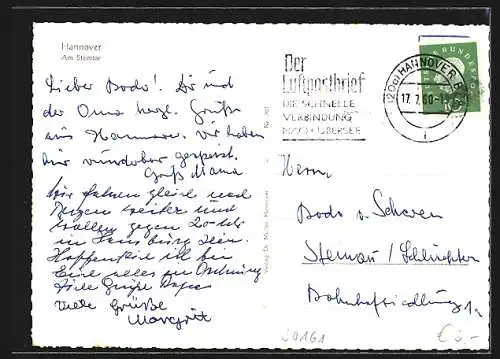 Hannover
Am Steintor
Lieber Bodo! Dir und
der Oma herzl. Grüße
aus Hannover. Wir haben
hier wunderbar gespeist.
Gruß Mama
Wir fahren gleich nach
weiter und
wollen gegen 20 Uhr
in Hamburg sein.
Hoffentlich ist bei
Euch alles in Ordnung
Viele Grüße Papa
Viele Grüße
Margrit
Der
Luftpostbrief
DIE SCHNELLE
VERBINDUNG
NACH ÜBERSEE
(20a) HANNOVER
17.7.60-15
Herrn
Bodo v. Scheven
Steinau / Schlüchtern
Bahnhofsiedlung 1a
S0161
€ 3,-